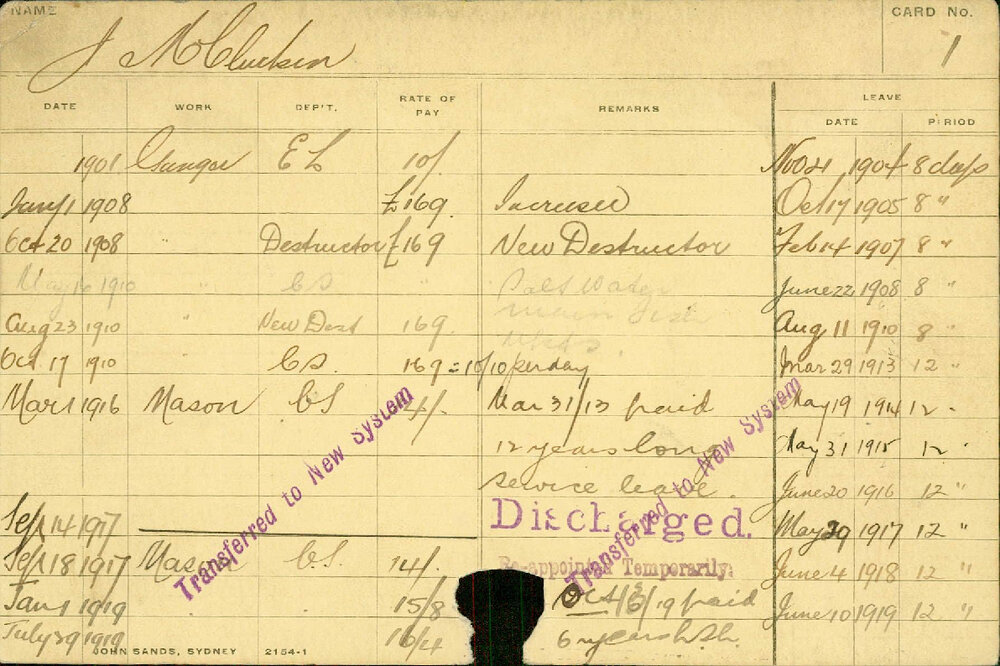 NAME
CARD No.
J McCluskin
1
DATE WORK DEP'T. RATE OF PAY REMARKS LEAVE
DATE PERIOD
1901 Ganger E L 10/ Nov 21 1904 8 days
Jany 1 1908 £169. Increased Oct 17 1905 8 "
Oct 20 1908 Destructor £169 New Destructor Feb 14 1907 8 "
May 16 1910 " CS " Salt Water June 22 1908 8 "
main
Aug 23 1910 " New Dest 169. Aug 11 1910 8 "
Oct 17 1910 " CS. 169 = 10/10 per day Mar 29 1913 12 "
Mar 1 1916 Mason CS 14/. Mar 31/13 paid May 19 1914 12 "
12 years long May 31 1915 12 "
service leave. June 20 1916 12 "
Sep 14 1917 Discharged. May 29 1917 12 "
Sep 18 1917 Mason CS. 14/. Re-appointed Temporarily. June 4 1918 12 "
Jan 1 1919 15/8 paid June 10 1919 12 "
July 1919 16/4 6 years
Transferred to New System
Transferred to New System
JOHN SANDS, SYDNEY 2154-1